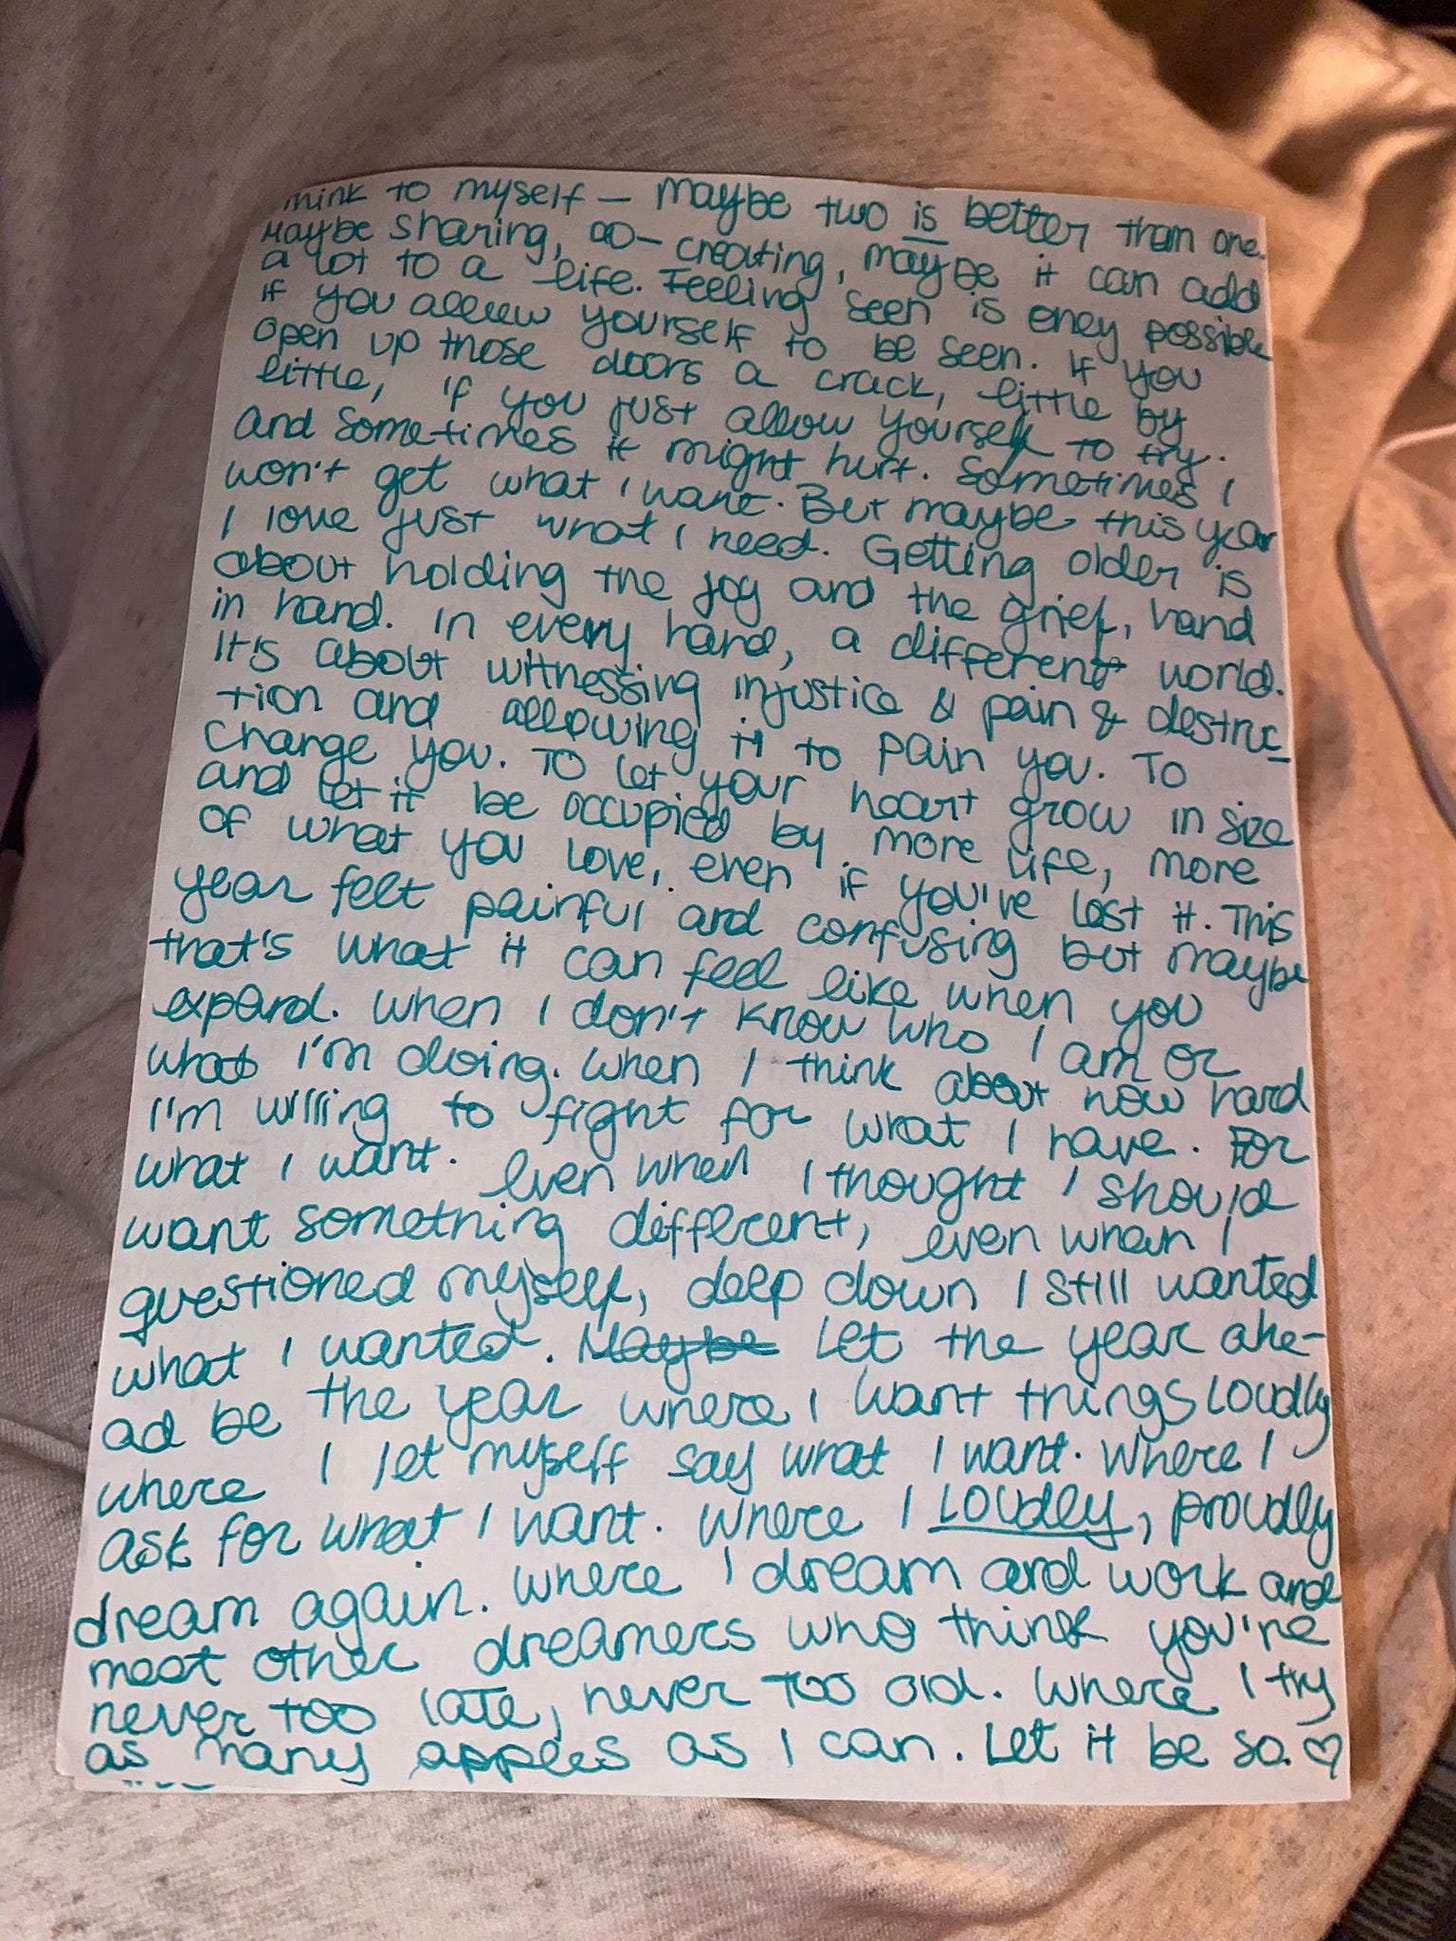 think to myself — Maybe two is better than one.
Maybe sharing, co-creating, maybe it can add
a lot to a life. Feeling seen is only possible
if you allow yourself to be seen. If you
open up those doors a crack, little by
little, if you just allow yourself to try.
And sometimes it might hurt. Sometimes I
won't get what I want. But maybe this year
I love just what I need. Getting older is
about holding the joy and the grief, hand
in hand. In every hand, a different world.
It's about witnessing injustice & pain & destruc-
tion and allowing it to pain you. To
change you. To let your heart grow in size
and let it be occupied by more life, more
of what you love, even if you've lost it. This
year felt painful and confusing but maybe
that's what it can feel like when you
expand. When I don't know who I am or
what I'm doing. When I think about how hard
I'm willing to fight for what I have. For
what I want. Even when I thought I should
want something different, even when I
questioned myself, deep down I still wanted
what I wanted. Maybe Let the year ahe-
ad be the year where I want things loudly
where I let myself say what I want. Where I
ask for what I want. Where I LOUDLY, proudly
dream again. Where I dream and work and
meet other dreamers who think you're
never too late, never too old. Where I try
as many apples as I can. Let it be so. ♡